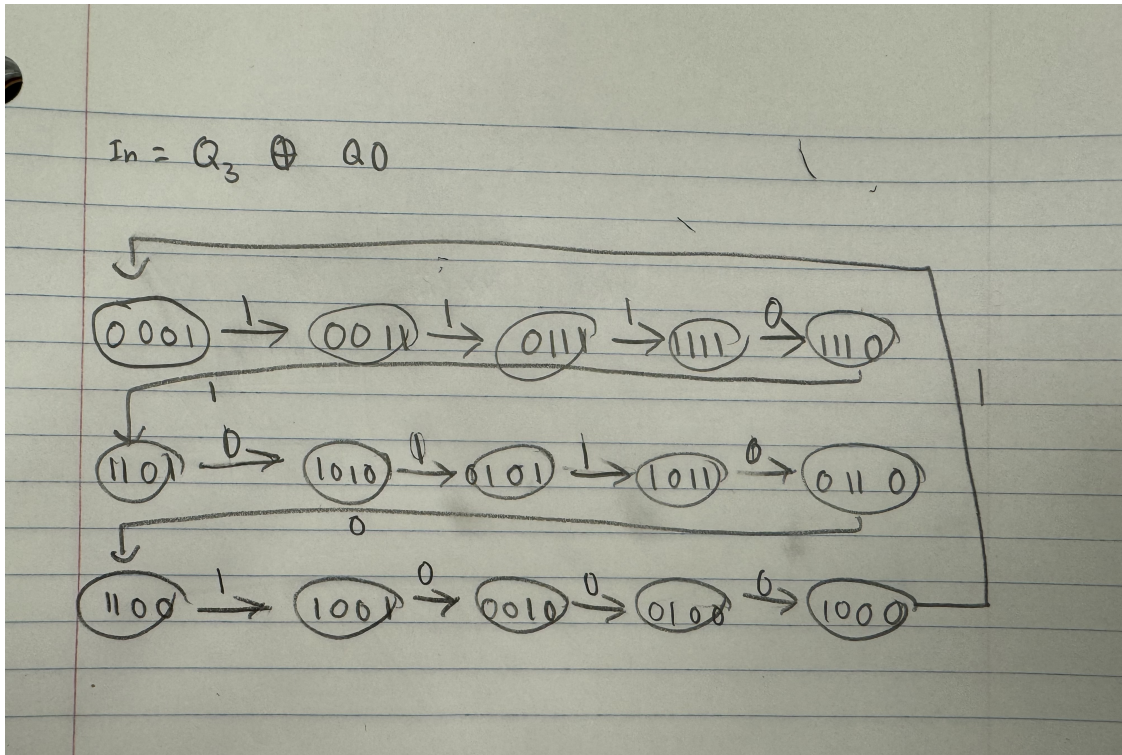 In = Q₃ ⊕ Q0
0001 1→ 0011 1→ 0111 1→ 1111 0→ 1110
1
1
1101 0→ 1010 1→ 0101 1→ 1011 0→ 0110
0
1100 1→ 1001 0→ 0010 0→ 0100 0→ 1000